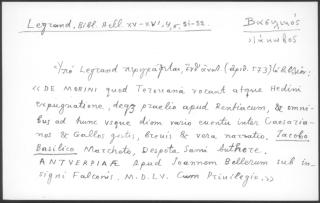 Legrand, Bibl. Hell. XV-XVI, 4, σ. 51-52.
Βασιλικός
Ἰάκωβος
Ὑπὸ Legrand περιγράφεται, ἔνθ' ἀνωτ. (ἀριθ. 573) τὸ βιβλίον:
«DE MORINI quod Terouana vocant atque Hedini
expugnatione, deq3 praelio apud Rentiacum, & omni-
bus ad hunc vsque diem vario euentu inter Caesaria-
nos & Gallos gestis, breuis & vera narratio. Iacobo
Basilico Marcheto, Despota Sami authore.
ANTVERPIAE Apud Ioannem Bellerum sub in-
signi Falconis. M.D.LV. Cum Priuilegio.»